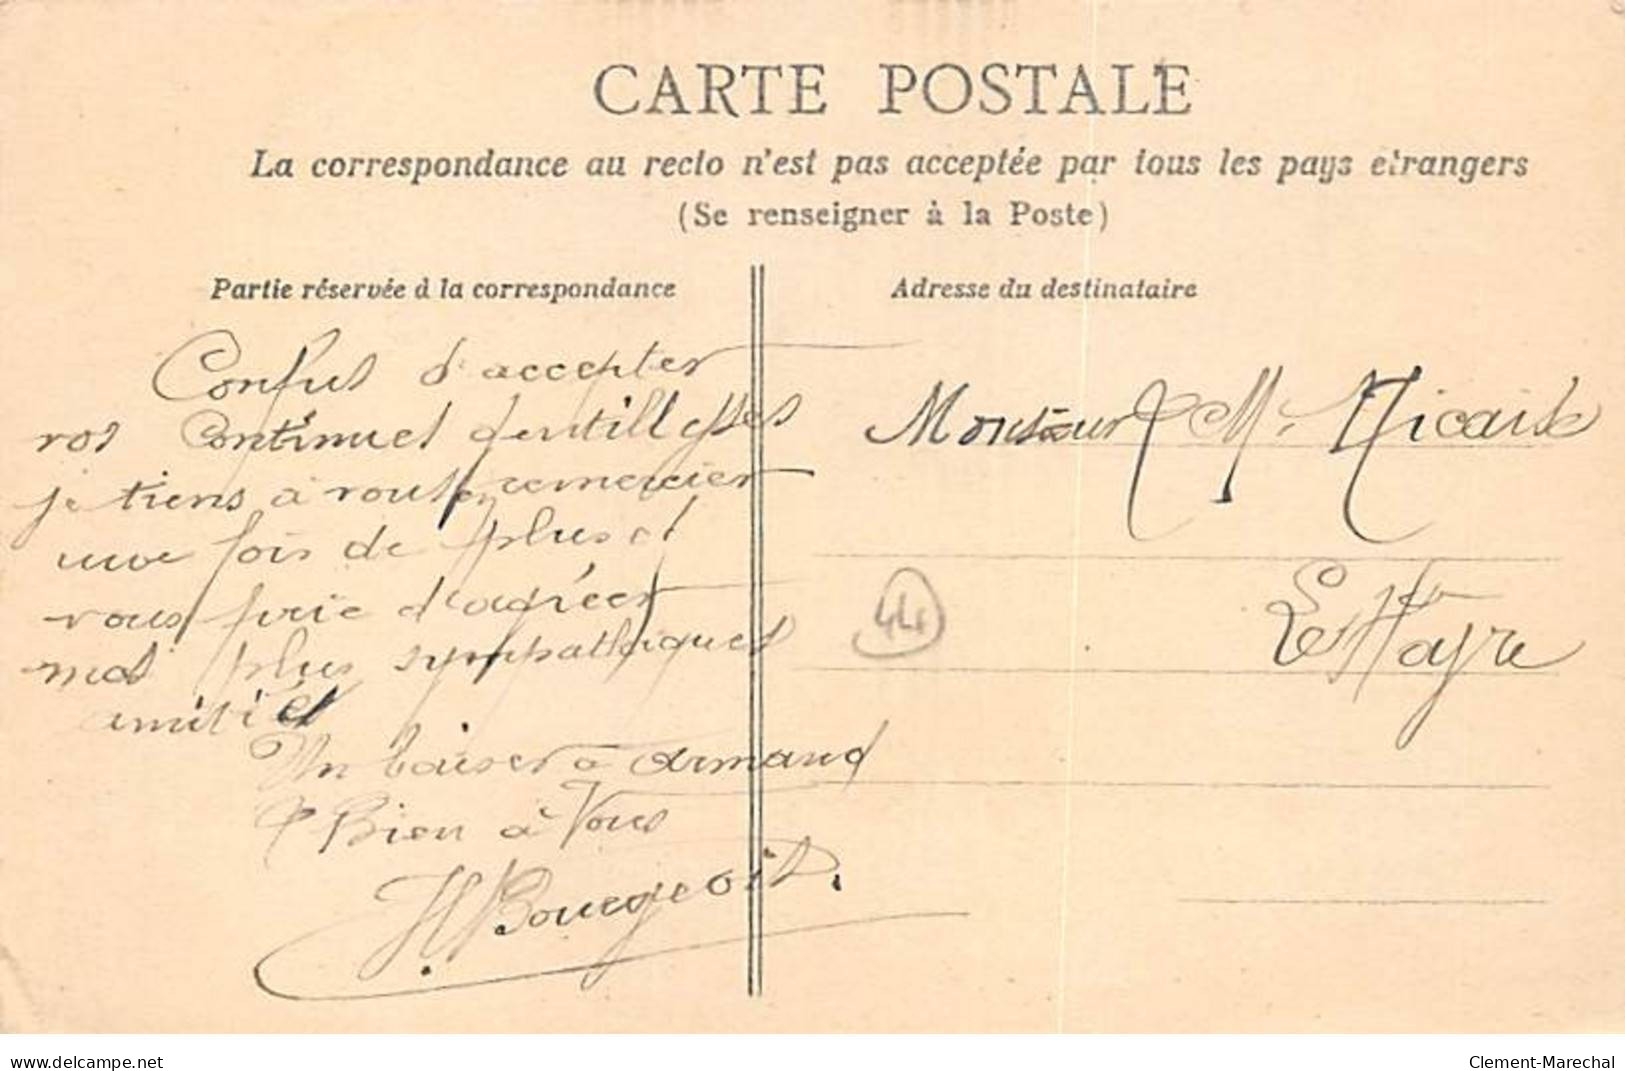 CARTE POSTALE
La correspondance au recto n'est pas acceptée par tous les pays etrangers
(Se renseigner à la Poste)
Partie réservée à la correspondance
Confus d'accepter
vos Continuel gentillesses
je tiens à vous en remercier
une fois de plus et
vous prie d'agréer
mes plus sympathiques
amitiés
Un baiser a Armand
& Bien à Vous
H Bourgeois.
Adresse du destinataire
Monsieur & Me Nicaise
Le Havre
44
www.delcampe.net
Clement-Marechal